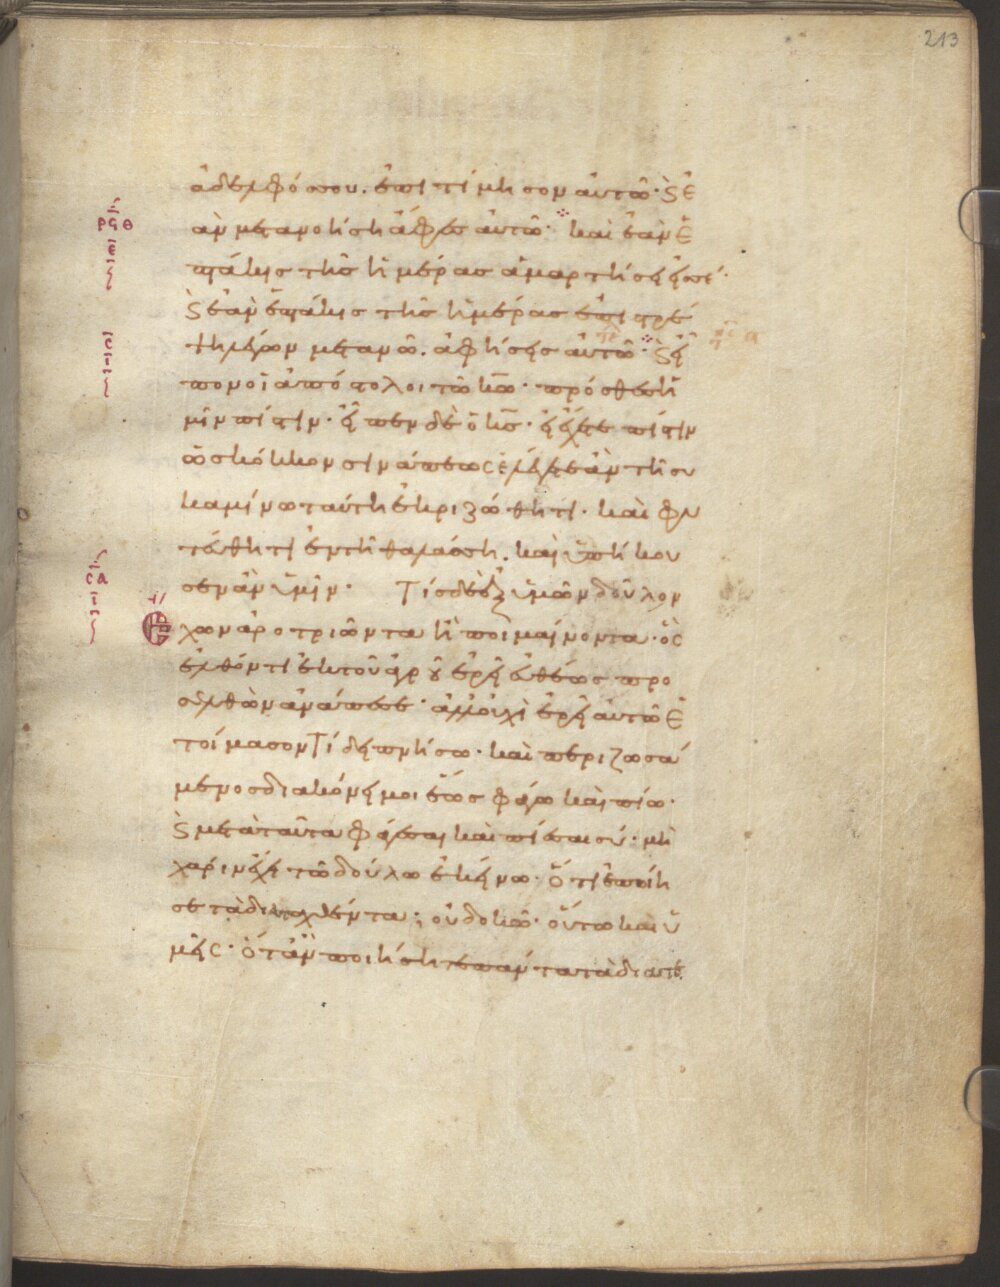 213
ἀδελφός σου. ἐπιτίμησον αὐτῶ· ϗ ἐ
ὰν μετανοήση ἄφες αὐτῶ· καὶ ἐὰν ἑ
πτάκις τῆς ἡμέρας ἁμαρτήσει εἰς σέ·
ϗ ἐὰν ἑπτάκις τῆς ἡμέρας ἐπιστρέ
ψη λέγων μετανοῶ. ἀφήσεις αὐτῶ· ϗ εἶ
πον οἱ ἀπόστολοι τῶ κῶ· πρόσθες ἡ
μῖν πίστιν· εἶπεν δὲ ὁ κς· εἰ ἔχετε πίστιν
ὡς κόκκον σινάπεως ἐλέγετε ἂν τῆ συ
καμίνω ταύτη ἐκριζώθητι· καὶ φυ
τεύθητι ἐν τῆ θαλάσση. καὶ ὑπήκου
σεν ἂν ὑμῖν· Τίς δὲ ἐξ ὑμῶν δοῦλον
ἔχων ἀροτριῶντα ἢ ποιμαίνοντα· ὃς
ἐλθόντι ἐκ τοῦ ἀγροῦ ἐρεῖ εὐθέως προ
σελθὼν ἀνάπεσε· ἀλλ οὐχὶ ἐρεῖ αὐτῶ ἑ
τοίμασον τί δειπνήσω· καὶ περιζωσά
μενος διακόνει μοι ἕως φάγω καὶ πίω·
ϗ μετὰ ταῦτα φάγεσαι καὶ πίεσαι σύ· μὴ
χάριν ἔχει τῶ δούλω ἐκείνω· ὅτι ἐποίη
σε τὰ διαταχθέντα; οὐ δοκῶ· οὕτω καὶ ὑ
μεῖς· ὅταν ποιήσητε πάντα τὰ διατα